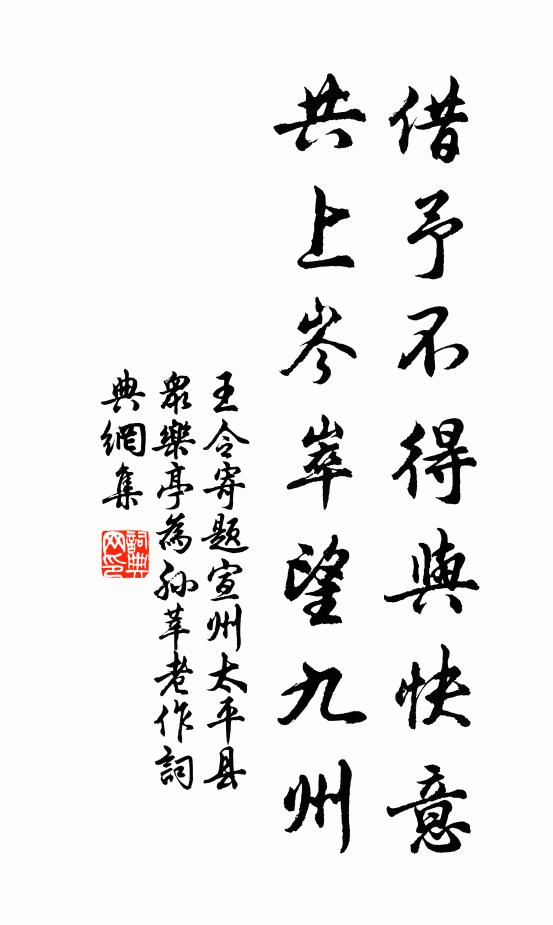 借予不得與快意
共上岑崒望九州
王令寄題宣州太平县
眾樂亭為孫莘老作詞
典網集
詞典网印